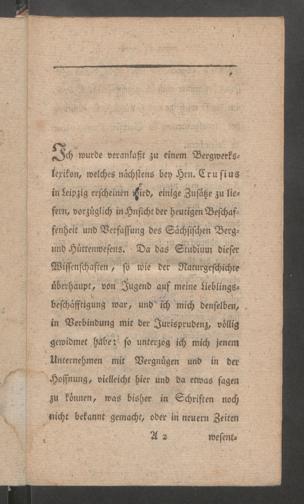 Ich wurde veranlaßt zu einem Bergwerks-
lexikon, welches nächstens bey Hrn. Crusius
in Leipzig erscheinen wird, einige Zusätze zu lie-
fern, vorzüglich in Hnsicht der heutigen Beschaf-
fenheit und Verfassung des Sächsischen Berg-
und Hüttenwesens. Da das Studium dieser
Wissenschaften, so wie der Naturgeschichte
überhaupt, von Jugend auf meine Lieblings-
beschäfftigung war, und ich mich denselben,
in Verbindung mit der Jurisprudenz, völlig
gewidmet habe; so unterzog ich mich jenem
Unternehmen mit Vergnügen und in der
Hoffnung, vielleicht hier und da etwas sagen
zu können, was bisher in Schriften noch
nicht bekannt gemacht, oder in neuern Zeiten
A 2 wesent-